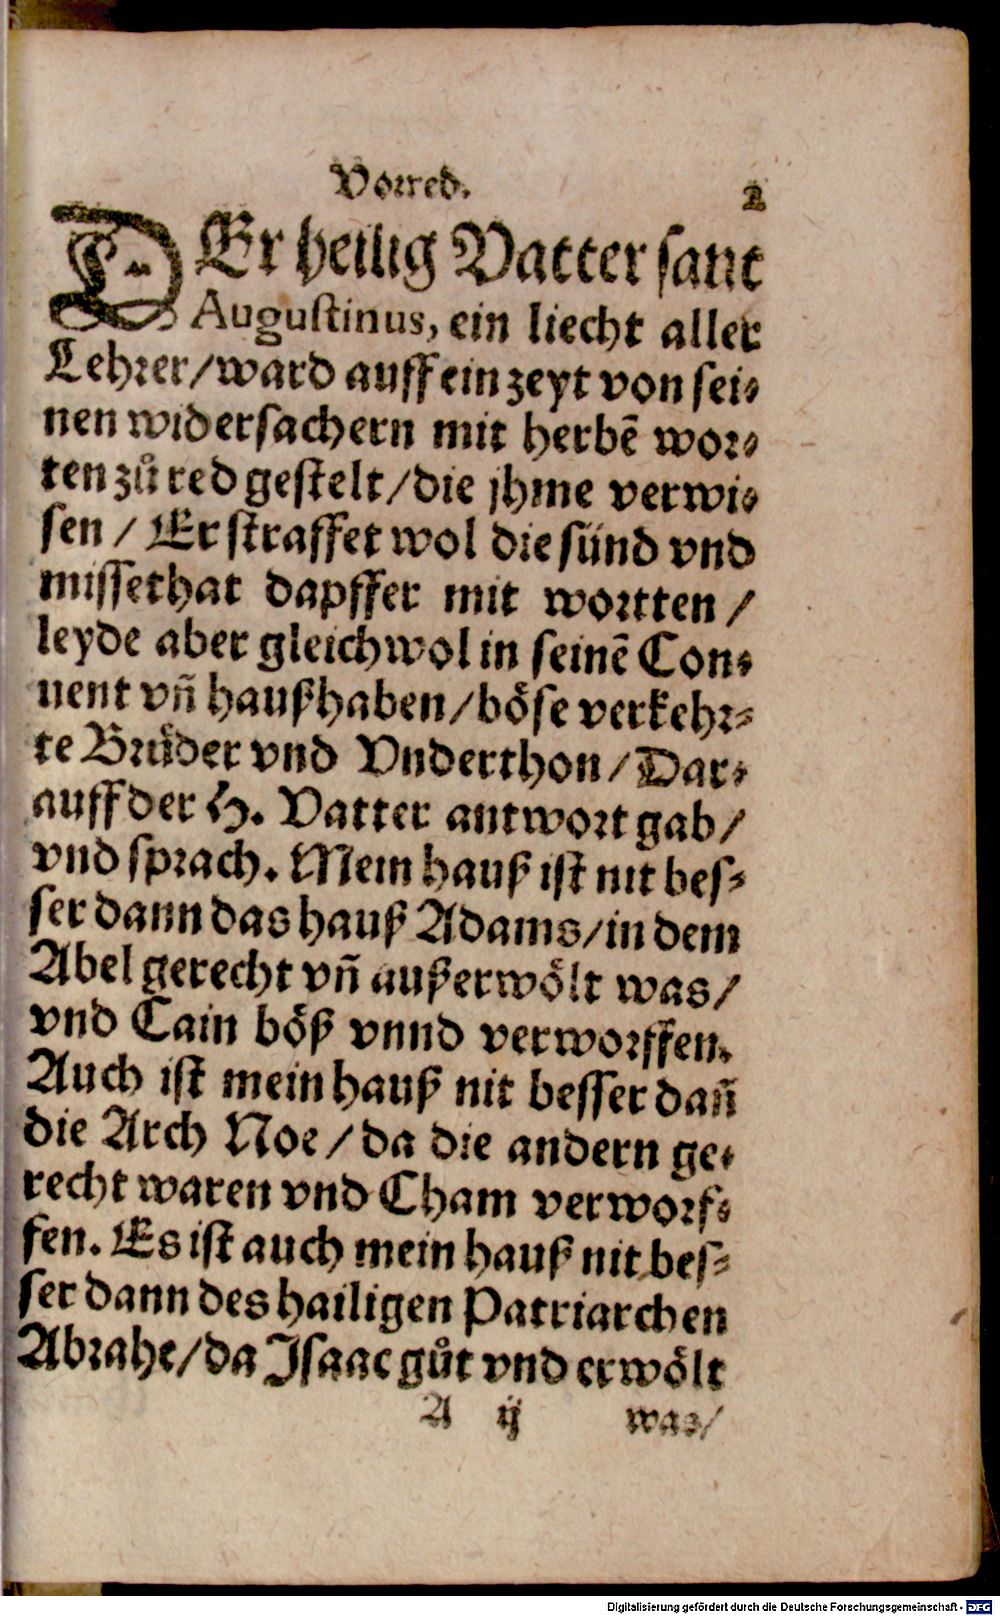 Vorred. 2
DEr heilig Vatter sant
Augustinus, ein liecht aller
Lehrer/ward auff ein zeyt von sei-
nen widersachern mit herbẽ wor-
ten zů red gestelt/die jhme verwi-
sen / Er straffet wol die sünd vnd
missethat dapffer mit wortten /
leyde aber gleichwol in seinẽ Con-
uent vñ haußhaben/böse verkehr-
te Brüder vnd Vnderthon/Dar-
auff der H. Vatter antwort gab/
vnd sprach. Mein hauß ist nit bes-
ser dann das hauß Adams/in dem
Abel gerecht vñ außerwölt was/
vnd Cain böß vnnd verworffen.
Auch ist mein hauß nit besser dañ
die Arch Noe/da die andern ge-
recht waren vnd Cham verworf-
fen. Es ist auch mein hauß nit bes-
ser dann des hailigen Patriarchen
Abrahe/da Isaac gůt vnd erwölt
A ij was/
Digitalisierung gefördert durch die Deutsche Forschungsgemeinschaft - DFG